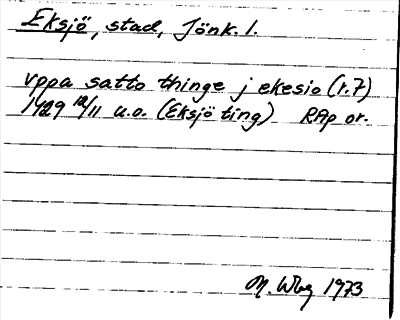 Eksjö, stad, Jönk. l.
vppa satto thinge j ekesio (r.7)
1429 12/11 u.o. (Eksjö ting) RAp or.
M. Wbg 1973